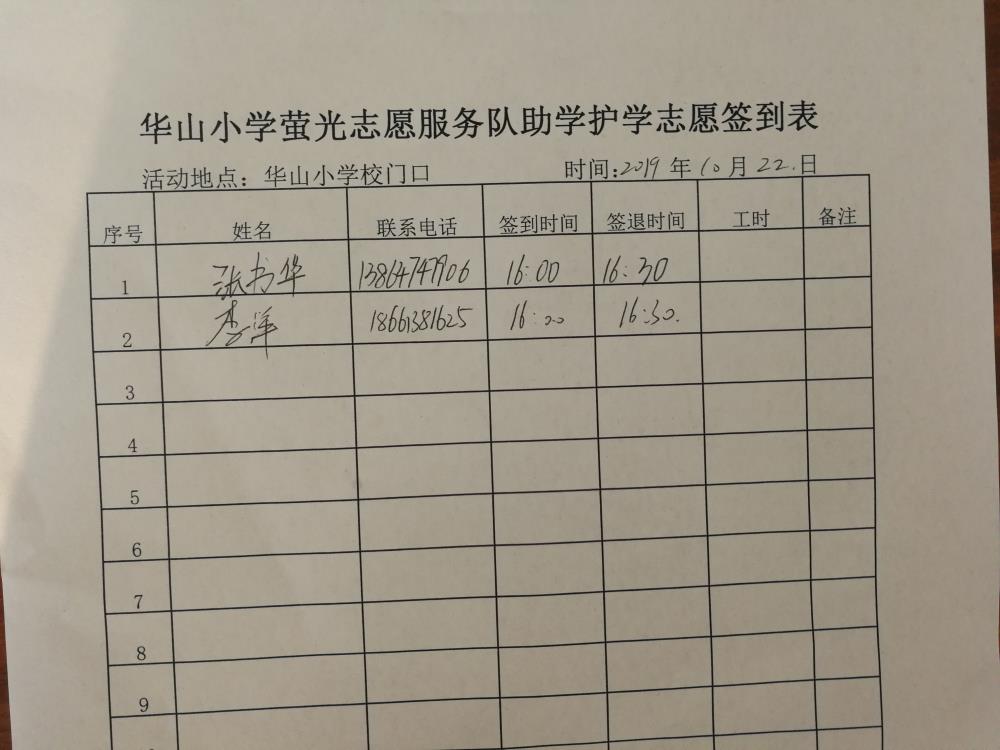 华山小学萤光志愿服务队助学护学志愿签到表
活动地点：华山小学校门口 时间:2019年10月22.日
序号 姓名 联系电话 签到时间 签退时间 工时 备注
1 张书华 13864747906 16:00 16:30
2 李洋 18661381625 16:00 16:30.
3
4
5
6
7
8
9